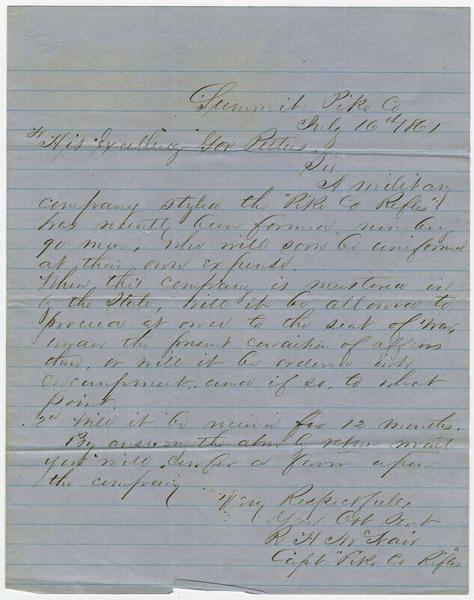 Summit Pike Co
July 16th 1861
To His "Excellency" Gov Pettus,
Sir
A military
company styled the "Pike Co Rifles"
has recently been formed numbering
90 men, who will soon be uniformed
at their own expense.
When this company is mustered in
by the State, will it be allowed to
proceed at once to the seat of War,
under the present condition of affairs
there, or will it be ordered into
encampment, and if so, to what
point.
2d Will it be received for 12 months.
By answering the above by return mail
you will confer a favor upon
the company
Very Respectfully
Your Obt Servt
R. H. McNair
Capt "Pike Co Rifles"